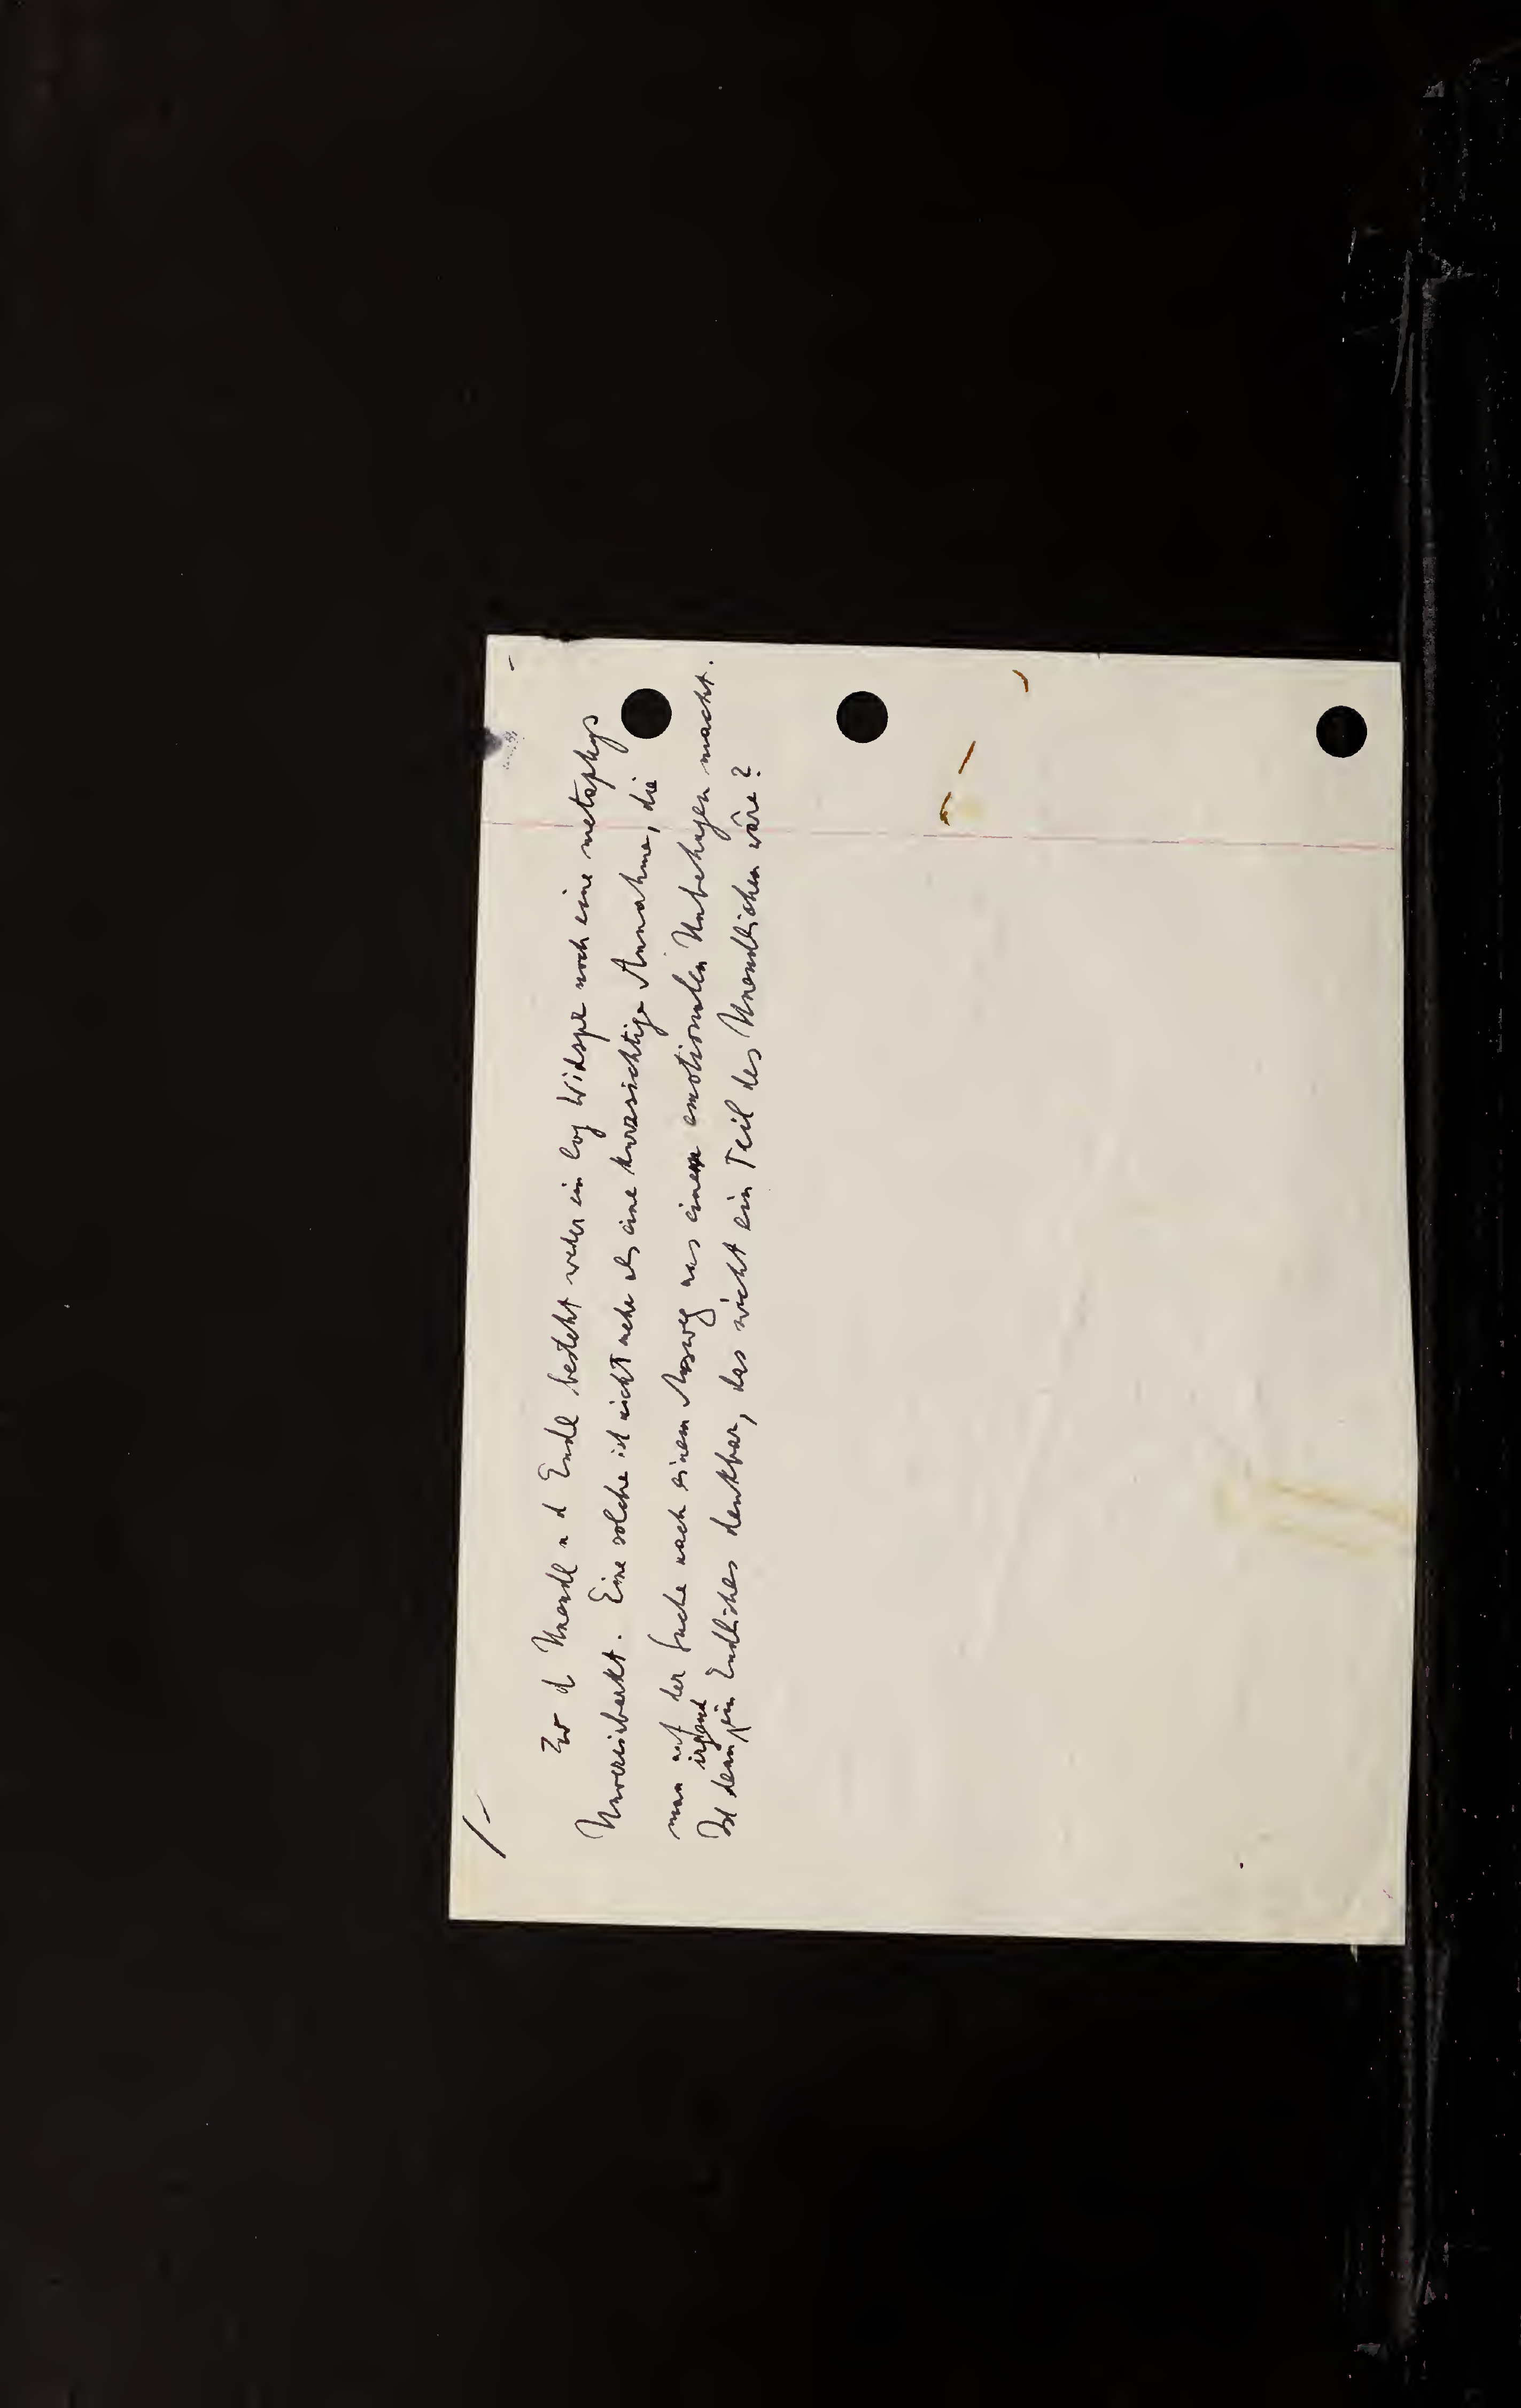 Zw d Unendl u d Endl besteht weder ein log Widspr noch eine metaphys
Unvereinbarkt. Eine solche ist nicht mehr als eine kurzsichtige Annahme, die
man auf der Suche nach einem Ausweg aus einem emotionalen Unbehagen macht.
irgend
Ist denn ein Endliches denkbar, das nicht ein Teil des Unendlichen wäre?